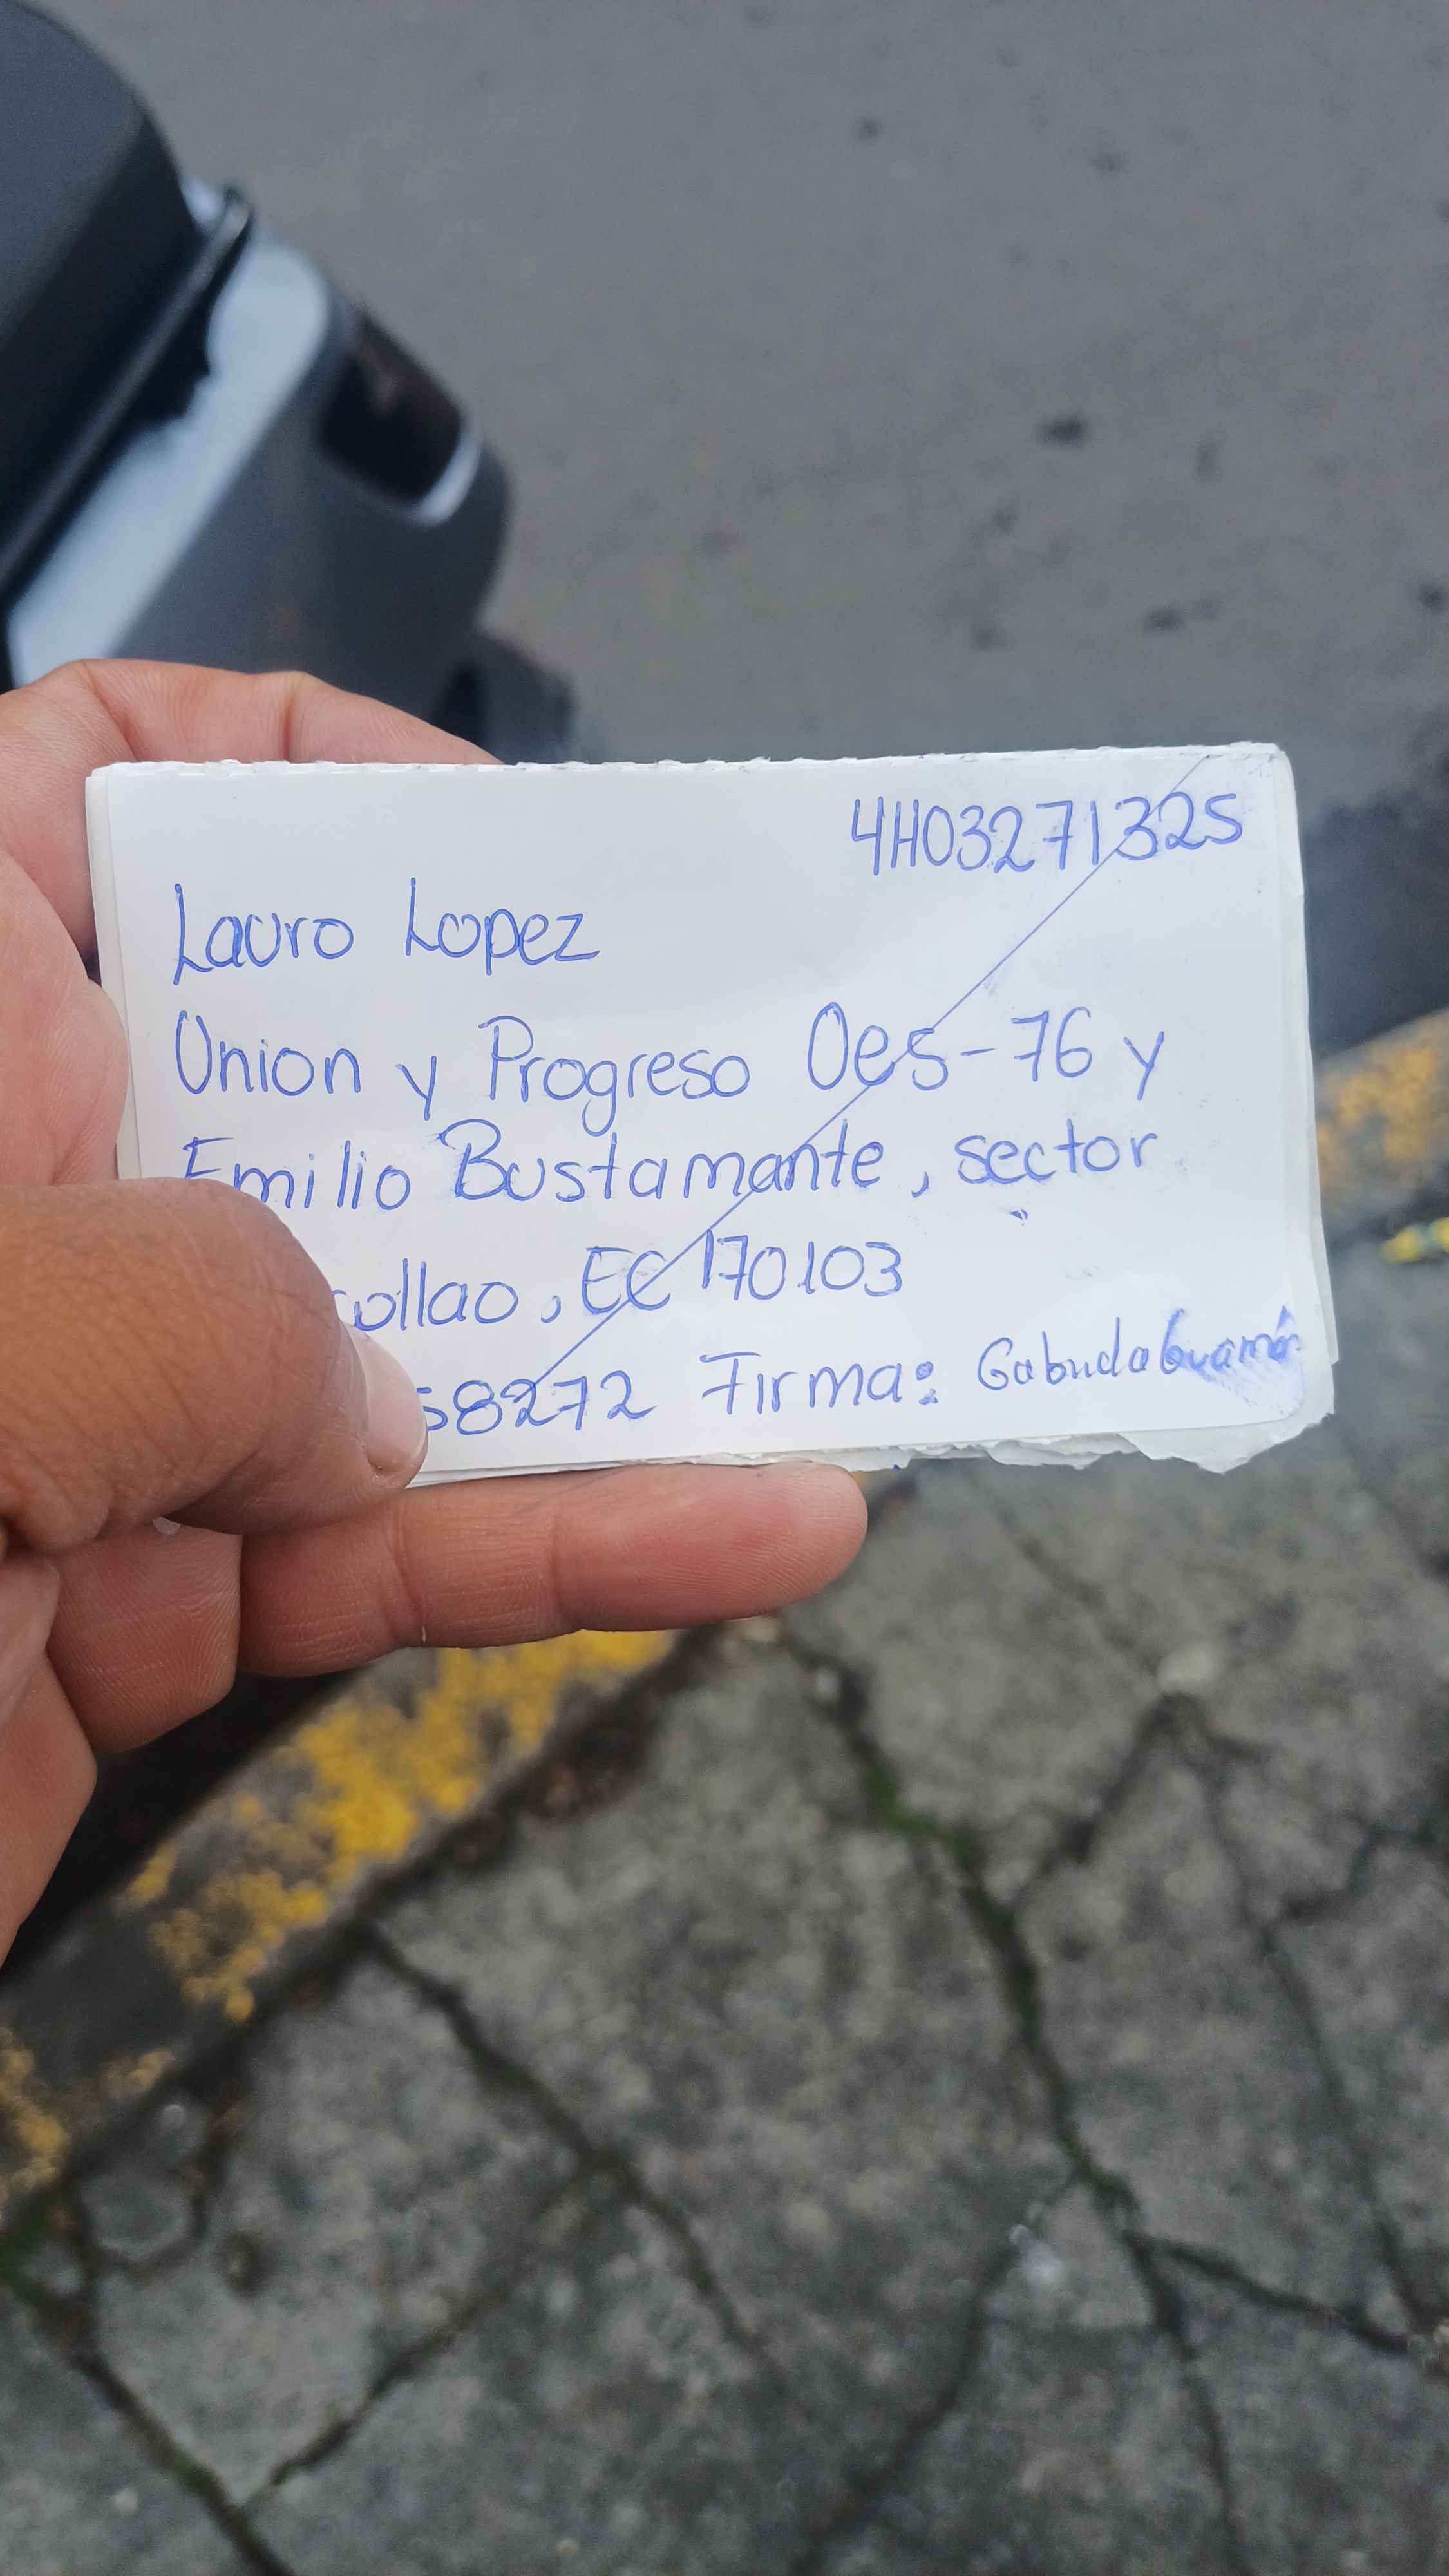 4H03271325
Lauro Lopez
Union y Progreso Oe5-76 y
Emilio Bustamante, sector
collao, EC 170103
58272 Firma: